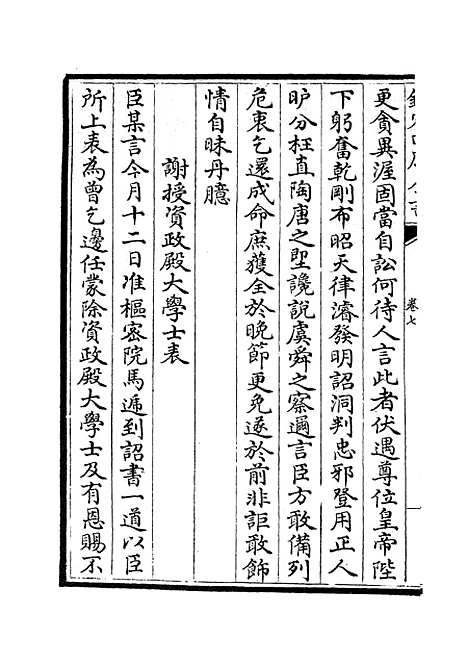 欽定四庫全書
卷七
更貪異渥固當自訟何待人言此者伏遇尊位皇帝陛
下躬奮乾剛布昭天律濬發明詔洞判忠邪登用正人
旷分枉直陶唐之聖讒説虞舜之察邇言臣方敢備列
危衷乞還成命庶獲全於晚節更免遂於前非詎敢飾
情自昧丹臆
謝授資政殿大學士表
臣某言今月十二日准樞密院馬遞到詔書一道以臣
所上表為曾乞邊任蒙除資政殿大學士及有恩賜不